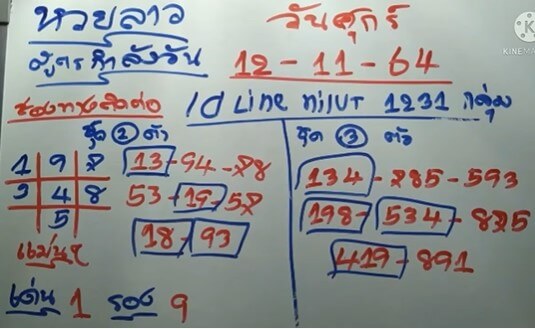 หวยลาว
วันศุกร์
สูตรกำลังวัน
12-11-64
ช่องทางติดต่อ
Id Line
1231 กลุ่ม
ชุด 2 ตัว
ชุด 3 ตัว
1 9 8
3 4 8
5
13-94-28
53-19-58
18-93
134-285-593
198-534-825
419-891
แม่นๆ
เด่น 1 รอง 9
KINEMA